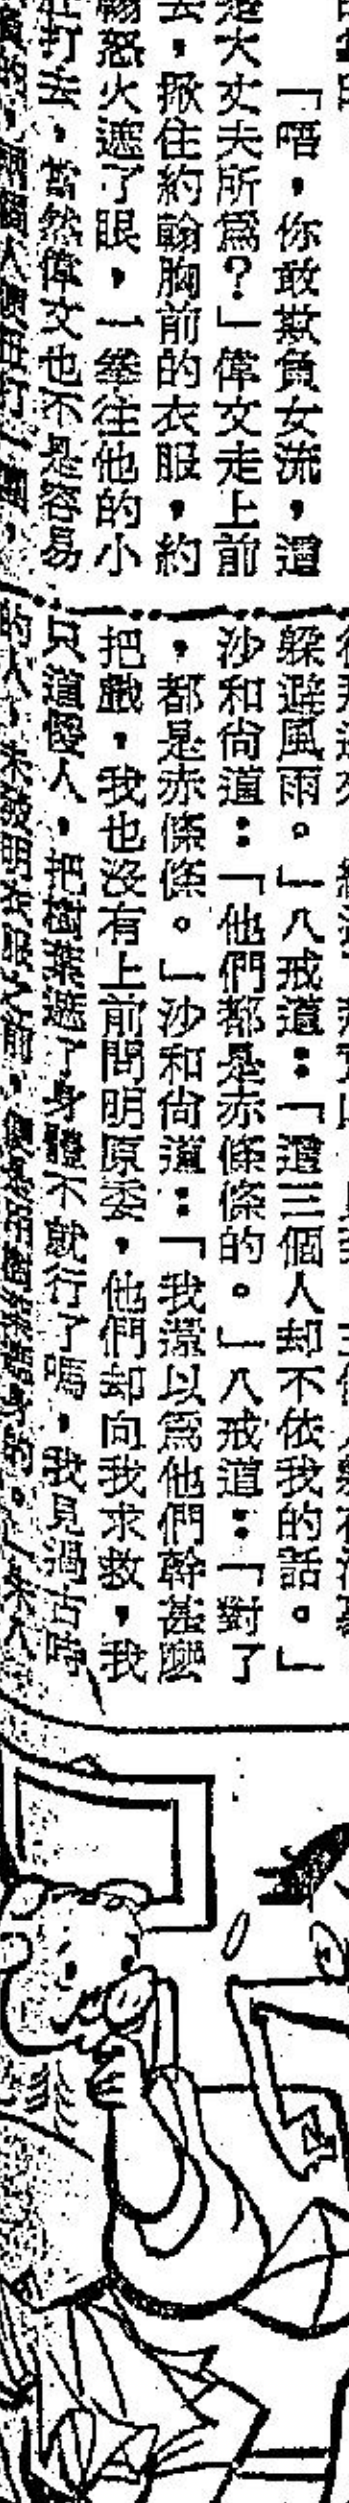 「唔，你敢欺負女流，這
是大丈夫所爲？」偉文走上前
去，揪住約翰胸前的衣服，約
翰怒火遮了眼，一拳往他的小
打去，當然偉文也不是容易
躱避風雨。」八戒道：「這三個人却不依我的話。」
沙和尙道：「他們都是赤條條的。」八戒道：「對了
，都是赤條條。」沙和尙道：「我還以爲他們幹甚麽
把戲，我也沒有上前問明原委，他們却向我求救，我
只道優人，把樹葉遮了身體不就行了嗎，我見過古時
的人，未發明衣服之前，